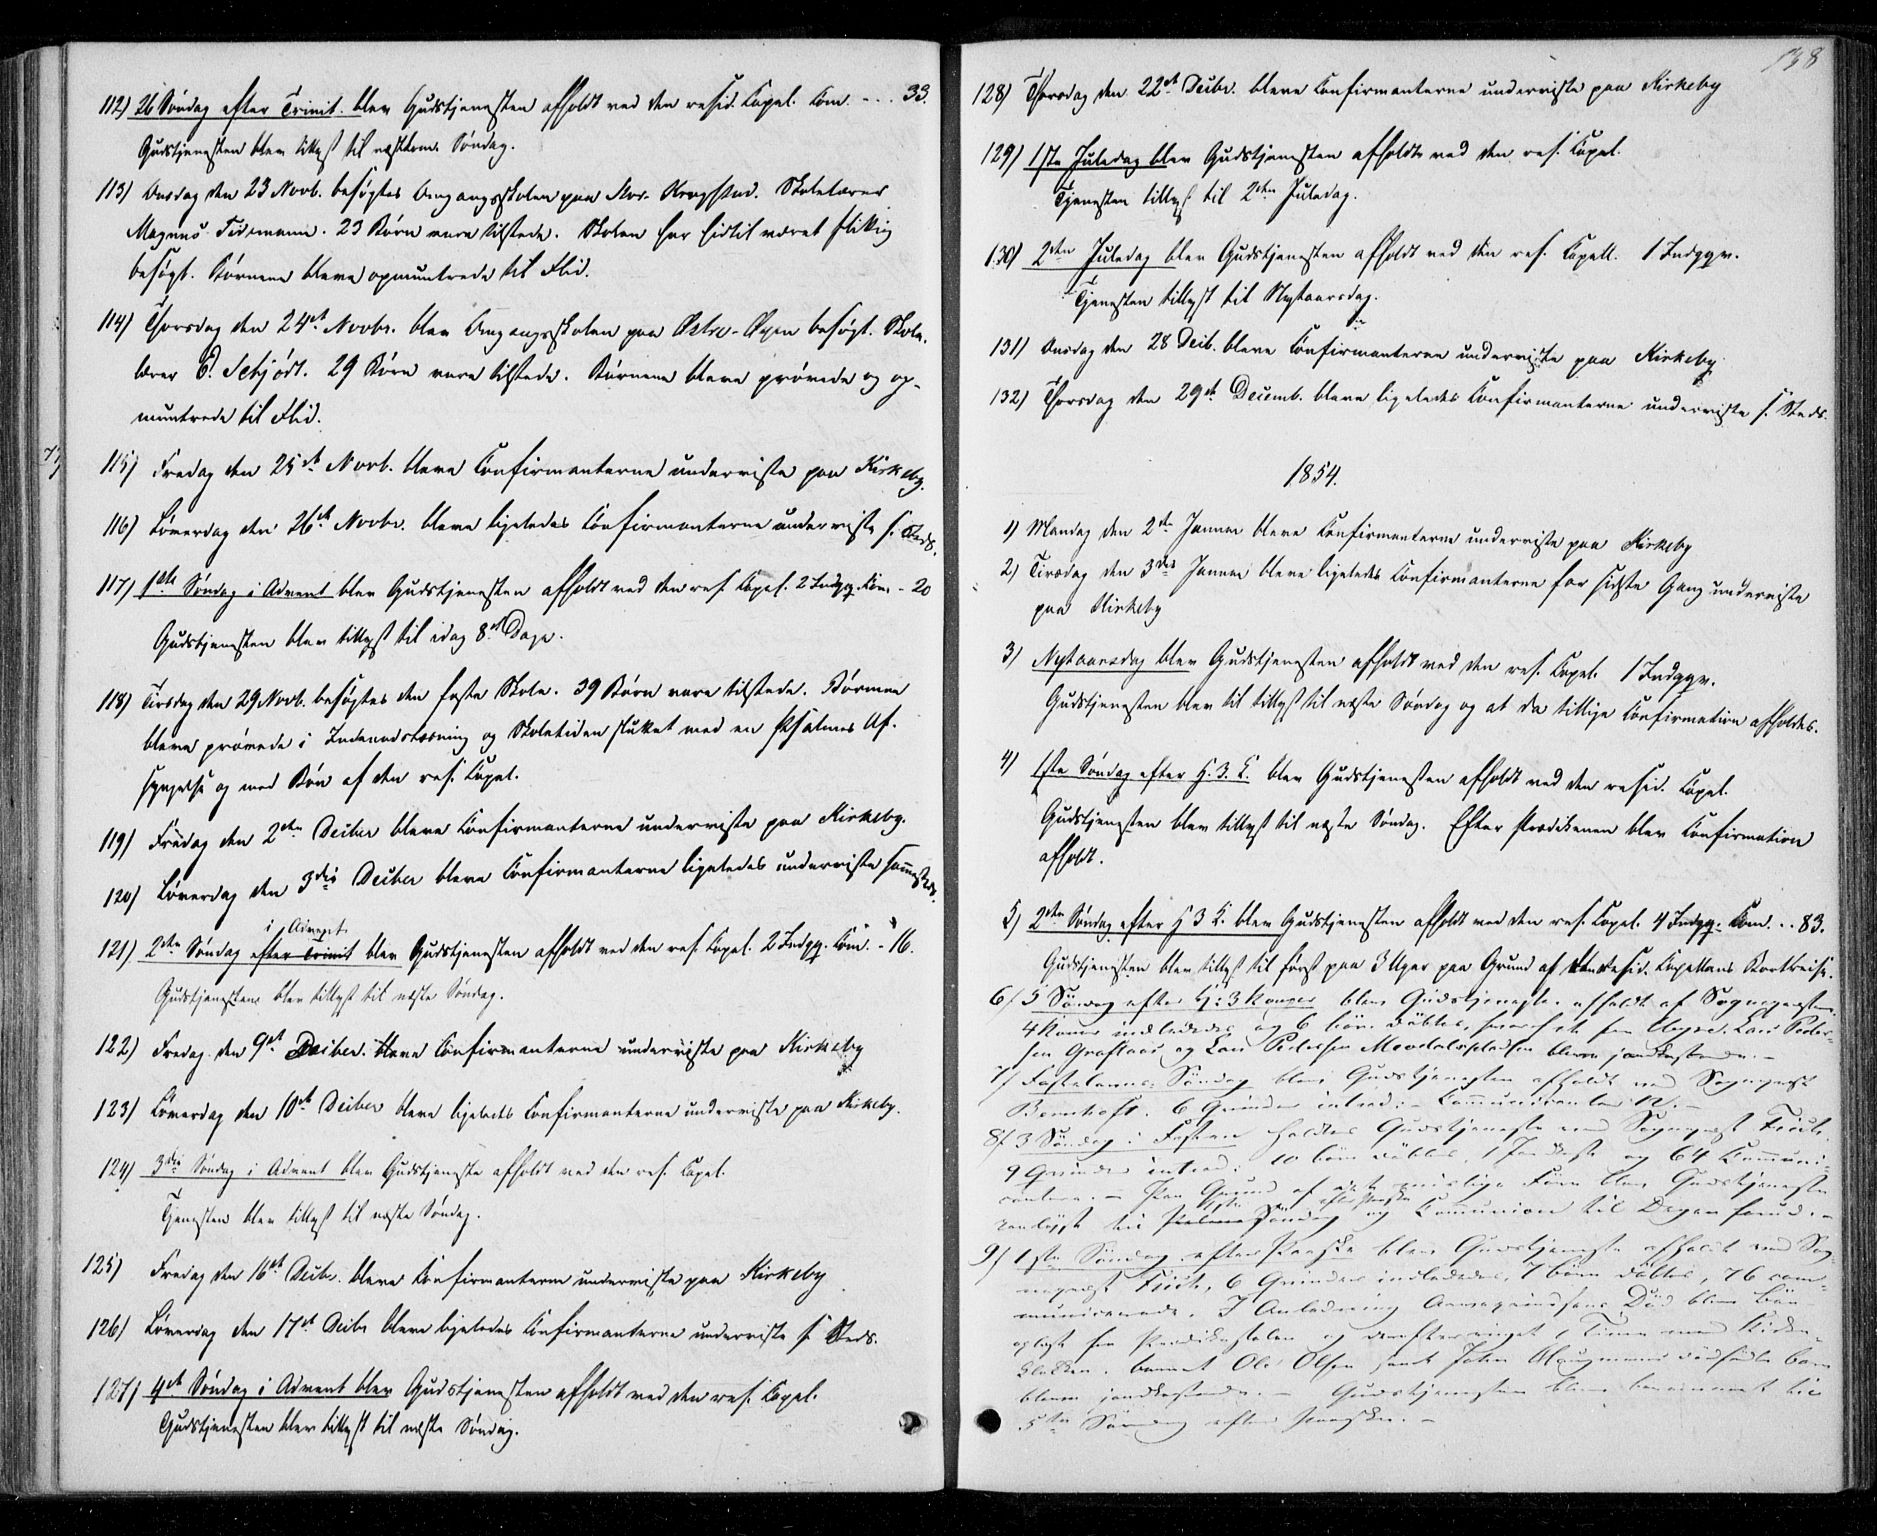 112) 26 Søndag efter Trinit. blev Gudstjenesten afholdt ved den resid. Capel. Com. - .. 33.
Gudstjenesten blev tillyst til næstkom. Søndag.
113) Onsdag den 23 Novb. besøgtes Omgangsskolen paa Skolelærer
Magnus. 23 Børn vare tilstede. Skolen har hidtil været flittig
besøgt. Børnene bleve opmuntrede til Flid.
114) Thorsdag den 24de Novbr. blev Omgangsskolen paa Østre- besøgt. Skole-
lærer Schjødt. 29 Børn vare tilstede. Børnene bleve prøvede og op-
muntrede til Flid.
115) Fredag den 25de Novb. bleve Confirmanterne underviste paa Kirkeby.
116) Løverdag den 26de Novbr. bleve ligeledes Confirmanterne underviste s. Steds.
117) 1ste Søndag i Advent blev Gudstjenesten afholdt ved den res. Capel. 2 Indgg. Com. - 20
Gudstjenesten blev tillyst til idag 8te Dage.
118) Tirsdag den 29 Novb. besøgtes den faste Skole. 39 Børn vare tilstede. Børnene
bleve prøvede i Indenadslæsning og Skoletiden sluttet med en Psalmes Af-
syngelse og med Bøn af den res. Capel.
119) Fredag den 2den Decber bleve Confirmanterne underviste paa Kirkeby.
120) Løverdag den 3die Decber bleve Confirmanterne ligeledes underviste sammesteds.
i Advent
121) 2den Søndag efter Trinit blev Gudstjenesten afholdt ved den res. Capel. 2 Indgg. Com. - 16.
Gudstjenesten blev tillyst til næste Søndag.
122) Fredag den 9de Decber. bleve Confirmanterne underviste paa Kirkeby
123) Løverdag den 10de Decber bleve ligeledes Confirmanterne underviste paa Kirkeby.
124) 3die Søndag i Advent blev Gudstjeneste afholdt ved den res. Capel.
Tjenesten blev tillyst til næste Søndag.
125) Fredag den 16de Decbr. bleve Confirmanterne underviste paa Kirkeby
126) Løverdag den 17de Decbr bleve ligeledes Confirmanterne underviste s. Steds.
127) 4de Søndag i Advent blev Gudstjenesten afholdt ved den res. Capel.
Gudstjenesten blev tillyst til næste Søndag.
138
128) Thorsdag den 22de Decbr. bleve Confirmanterne underviste paa Kirkeby
129) 1ste Juledag blev Gudstjenesten afholdt ved den res. Capel.
Tjenesten tillyst til 2den Juledag.
130) 2den Juledag blev Gudstjenesten afholdt ved den res. Capell. 1 Indggv.
Tjenesten tillyst til Nytaarsdag.
131) Onsdag den 28 Decb. bleve Confirmanterne underviste paa Kirkeby
132) Thorsdag den 29de Decemb. bleve ligeledes Confirmanterne underviste s. Steds.
1854.
1) Mandag den 2den Januar bleve Confirmanterne underviste paa Kirkeby
2) Tirsdag den 3die Januar bleve ligeledes Confirmanterne for sidste Gang underviste
paa Kirkeby
3) Nytaarsdag blev Gudstjenesten afholdt ved den res. Capel. 1 Indggv.
Gudstjenesten blev til tillyst til næste Søndag og at da tillige Confirmation afholdes.
4) 1ste Søndag efter H. 3. K. blev Gudstjenesten afholdt ved den resid. Capel.
Gudstjenesten blev tillyst til næste Søndag. Efter Prædikenen blev Confirmation
afholdt.
5) 2den Søndag efter H 3 K. blev Gudstjenesten afholdt ved den res. Capel. 4 Indgg. Com. .. 83.
Gudstjenesten blev tillyst til først paa 3 Uger paa Grund af den resid. Capellans Bortreise.
6) 5 Søndag efter H: 3 Konger blev Gudstjeneste afholdt af Sognepræsten
4 Koner indledede og 6 børn døbtes, Lars Peder-
sen Graftaas og Lars Pedersen bleve jordkastede. -
7) Fastelavns-Søndag blev Gudstjenesten afholdt ved Sognepræst
6 Qvinder introd: - Communicanter 12. -
8) 3 Søndag i Fasten holdtes Gudstjeneste ved Sognepræst
9 Qvinder introd: 10 børn døbtes, 1 og 64 Communi-
canter. - Paa Grund af Føre blev Gudstjeneste
1ste efter Paaske
Søndag og Communion til Dagen forud. -
9) 1ste Søndag efter Paaske blev Gudstjeneste afholdt ved Sog-
nepræst 6 Qvinder indledede, 7 børn døbtes, 76 com-
municerede. I Anledning Død blev Bøn
oplæst fra Prædikestolen og derefter ringet 1 Time med Kirke-
klokken. Ole Olsen samt John dødfødte barn
bleve jordkastede. - Gudstjenesten blev berammet til
5te Søndag efter Paaske. -